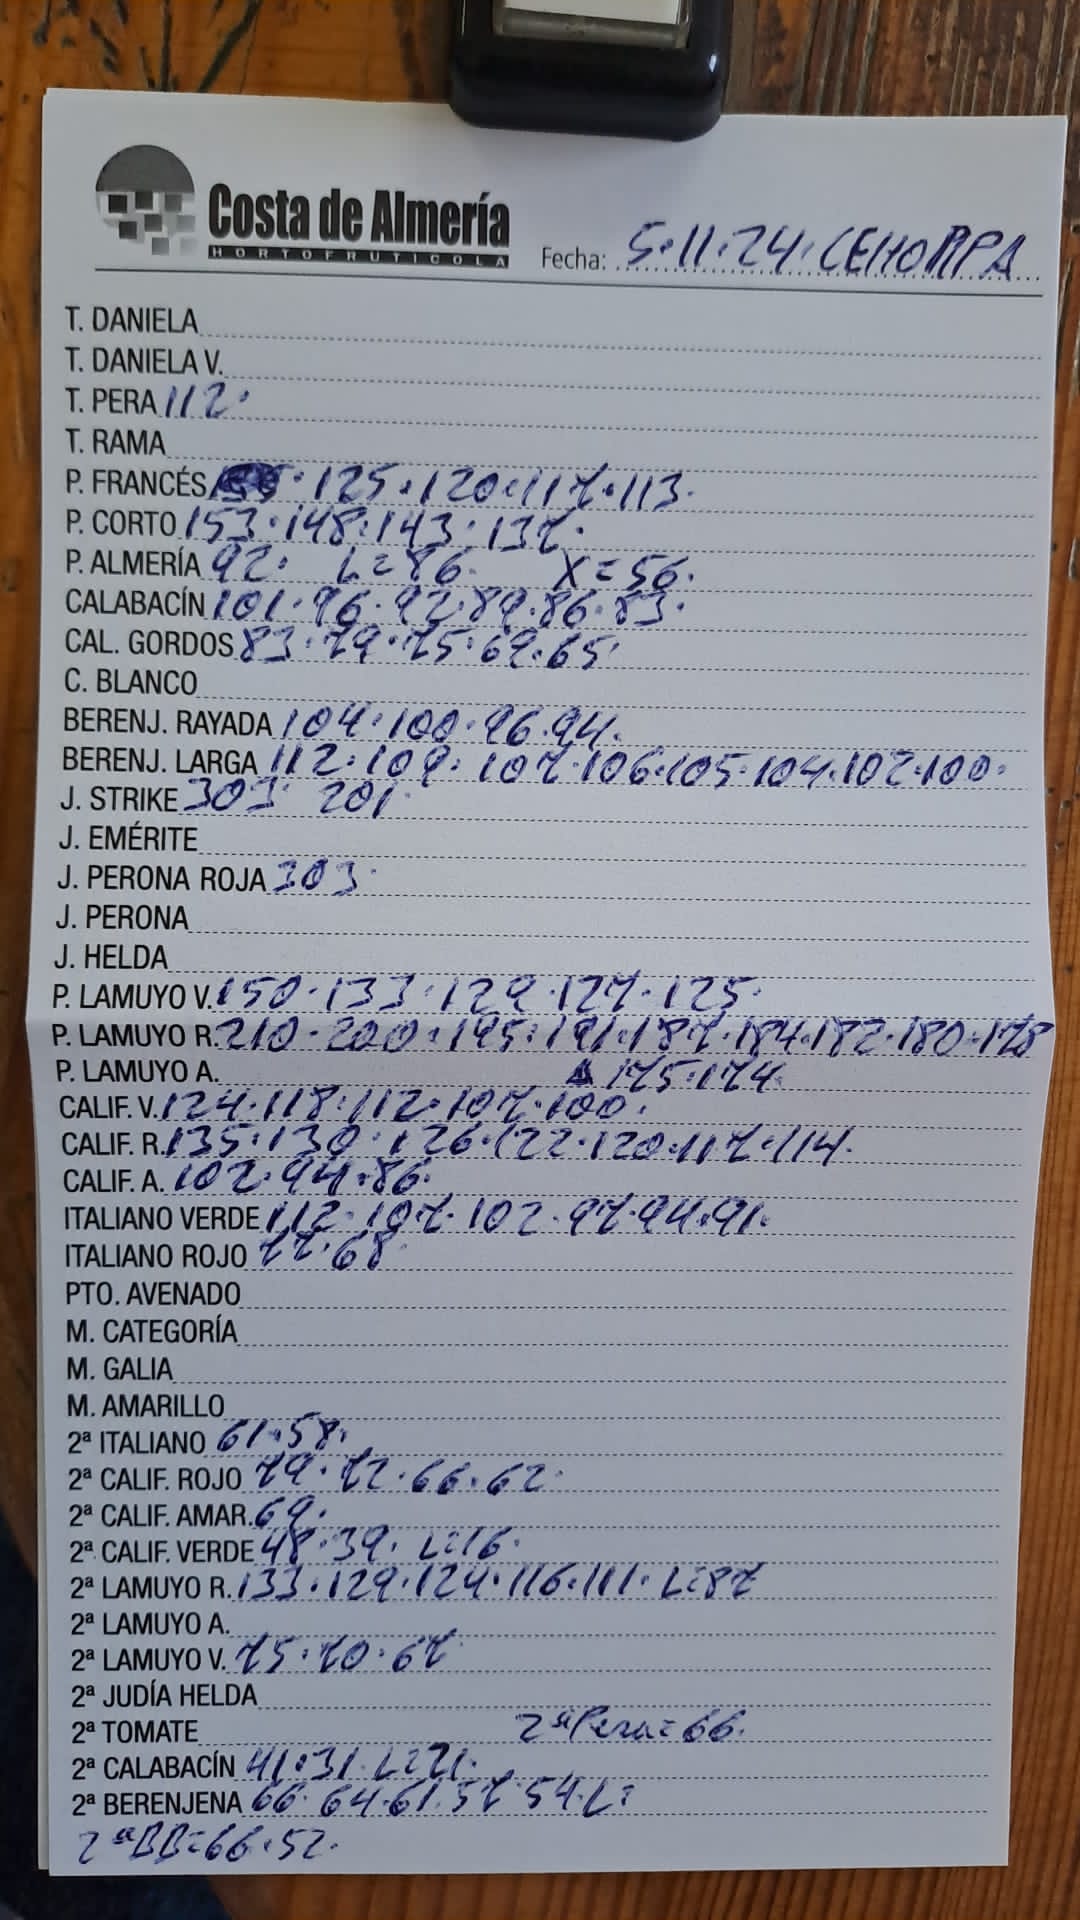 Costa de Almería
HORTOFRUTICOLA
Fecha: 5·11·24·CEHORPA
T. DANIELA
T. DANIELA V.
T. PERA 112·
T. RAMA
P. FRANCÉS · 125·120·117·113·
P. CORTO 153·148·143·137·
P. ALMERÍA 92· L=86· X=56·
CALABACÍN 101·96·92·89·86·83·
CAL. GORDOS 83·79·75·69·65·
C. BLANCO
BERENJ. RAYADA 104·100·96·94·
BERENJ. LARGA 112·109·107·106·105·104·102·100·
J. STRIKE 303· 201·
J. EMÉRITE
J. PERONA ROJA 303·
J. PERONA
J. HELDA
P. LAMUYO V. 150·133·129·127·125·
P. LAMUYO R. 210·200·195·191·187·184·182·180·178
P. LAMUYO A. 175·174·
CALIF. V. 124·118·112·107·100·
CALIF. R. 135·130·126·122·120·117·114·
CALIF. A. 102·94·86·
ITALIANO VERDE 112·107·102·97·94·91·
ITALIANO ROJO 77·68·
PTO. AVENADO
M. CATEGORÍA
M. GALIA
M. AMARILLO
2ª ITALIANO 61·58·
2ª CALIF. ROJO 79·72·66·62·
2ª CALIF. AMAR. 69·
2ª CALIF. VERDE 48·39· L=16·
2ª LAMUYO R. 133·129·124·116·111· L=87
2ª LAMUYO A.
2ª LAMUYO V. 75·70·67
2ª JUDÍA HELDA
2ª TOMATE 2ª Pera=66·
2ª CALABACÍN 41·31· L=21·
2ª BERENJENA 66·64·61·57·54·L=
2ª BB=66·52·